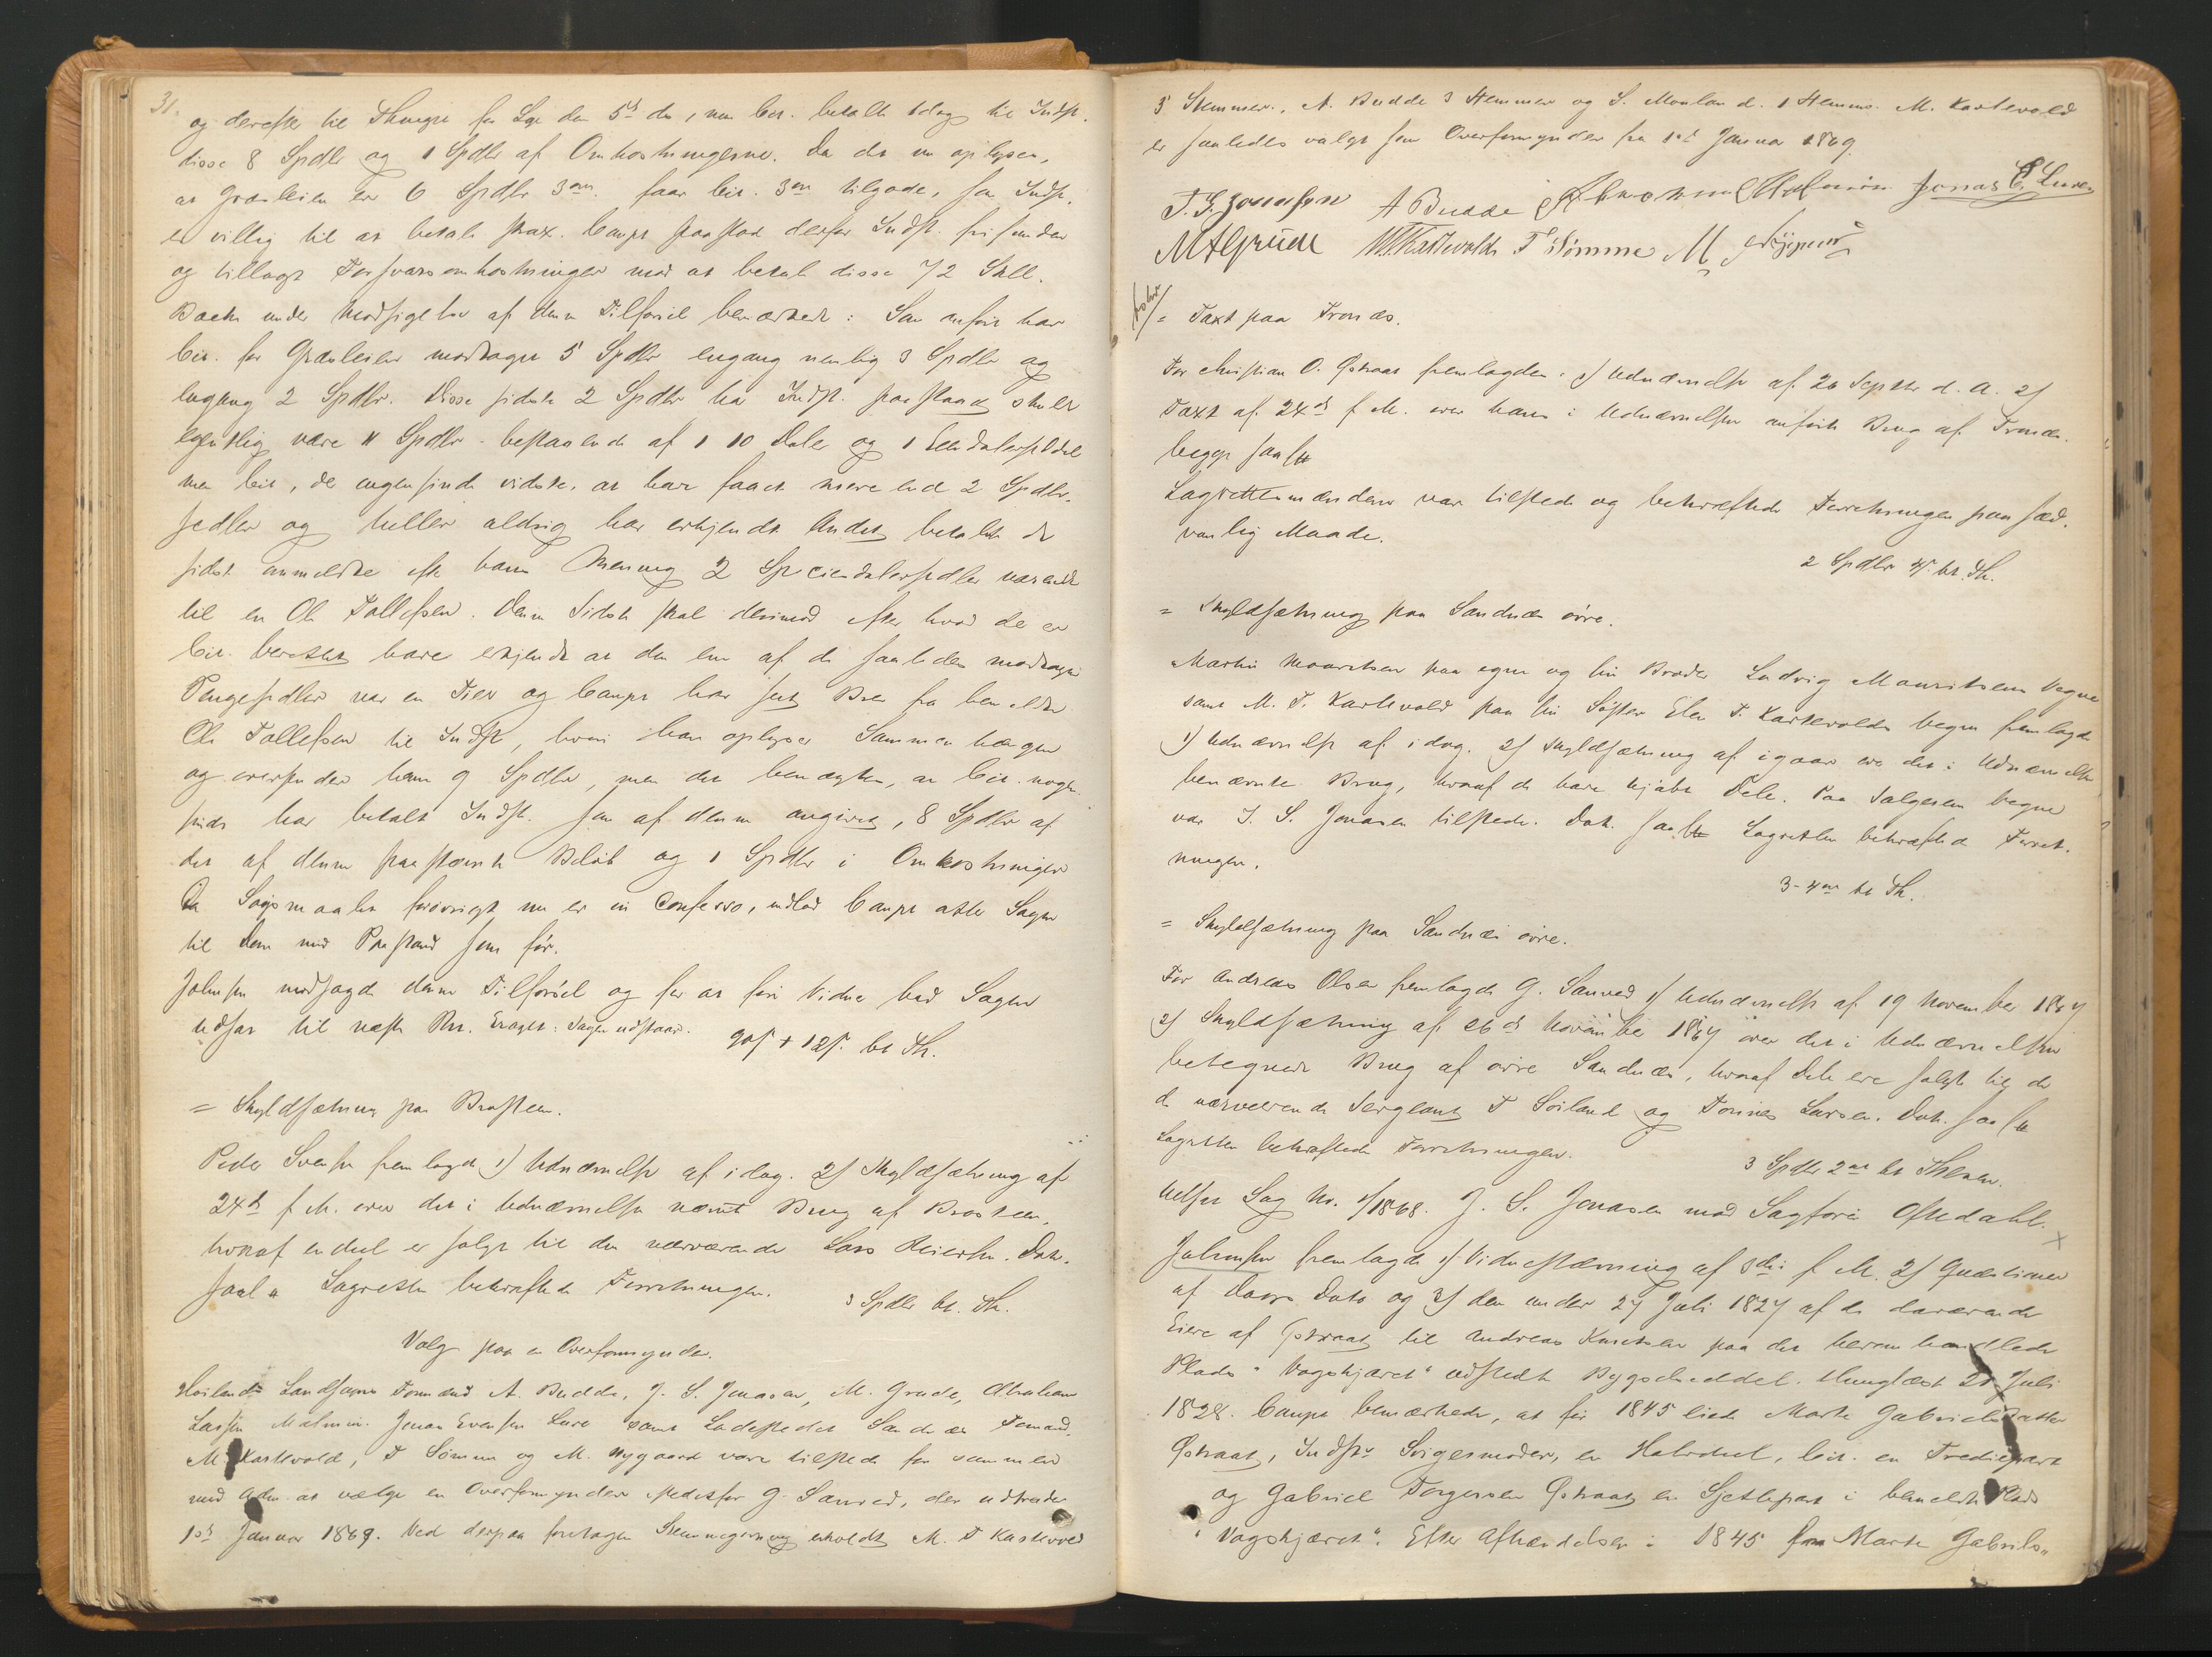 31.
og derefter til Thinget for Lye den 5te ds, men Cit. betalte idag til Indst.
disse 8 Spdlr og 1 Spdlr af Omkostningerne. Da det nu oplyses,
at Græsleien er 6 Spdlr 3 ort. faar Cit. 3 ort tilgode, som Indst.
er villig til at betale strax. Campe paastod derfor Indst. frifunden
og tillagt Forsvarsomkostninger mod at betale disse 72 Skill.
Bache under Modsigelse af denne Tilførsel bemærkede: Som anført har
Cit. for Græsleien modtaget 5 Spdlr engang nemlig 3 Spdlr og
engang 2 Spdlr. Disse sidste 2 Spdlr har Indst. paastaaet skulde
egentlig være 11 Spdlr - bestaaende af 1 10 Daler og 1 Eendalerseddel
men Cit, der ingensinde vidste, at have faaet mere end 2 Spdlr.
sedler og heller aldrig har erkjendt Andet, betalte de
sidst anmeldte efter hans Mening 2 Speciedalersedler
til en Ole Tollefsen. Denne Sidste skal derimod efter hvad de er
Cit. berettet have erkjendt at den ene af de saaledes modtagne
Pengesedler var en Tier og Campe har seet Brev fra bemeldte
Ole Tollefsen til Indst, hvori han oplyser Sammenhængen
og oversender ham 9 Spdlr, men det benægtes, at Cit. nogen
sinde har betalt Indst. som af denne angivet, 8 Spdlr af
det af denne paastævnte Beløb og 1 Spdlr i Omkostninger
Da Søgsmaalet forøvrigt nu er in Confesso, indlod Campe atter Sagen
til Dom med Paastand som før.
Johnsen modsagde denne Tilførsel og for at føre Vidner bad Sagen
udsat til næste Ret. Eragtet: Sagen udstaaer.
90s + 12s. bt Th.
= Skyldsætning paa Brasteen.
Peder Svensen fremlagde 1) Udnævnelse af idag. 2) Skyldsætning af
24de f. M. over det i Udnævnelsen nævnte Brug af Brosteen,
hvoraf en deel er solgt til den nærværende Lars Meiersen. Dok.
saal Lagretten bekræftede Forretningen.
3 Spdlr bt. Th.
Valg paa en Overformynder.
Høilands Landsogns Formænd A. Budde, J. S. Jonasen, M. Grude, Abraham
Larsen Malmin. Jonas Evensen Lure samt Ladestedet Sandnæs Formænd,
M. Kartevold, T Sømme og M. Nygaard vare tilstede for sammen
med Adm. at vælge en Overformynder istedetfor G. Sanved, der udtræder
1ste Januar 1869. Ved derpaa foretagen Stemmegivning erholdt M. T Kartevold
5 Stemmer, A. Budde 3 Stemmer og S. Mauland. 1 Stemme. M. Kartevold
er saaledes valgt som Overformynder fra 1ste Januar 1869.
J. S. Jonassen A Budde Abraham L Malmin Jonas E Luren
M A Grude M T Kartevold T Sømme M Nygaard
= Taxt paa Tronæs.
For Christian O. Østraat fremlagdes: 1) Udnævnelse af 26 Septbr d. A. 2)
Taxt af 24de f. M. over hans i Udnævnelsen anførte Brug af Tronæs.
begge saal
Lagrettemændene var tilstede og bekræftede Forretningen paa sæd-
vanlig Maade.
2 Spdlr 4s. bt. Th.
= Skyldsætning paa Sandnæs øvre.
Martin Mauritsen paa egne og sin Broder Ludvig Mauritsens Vegne
samt M. T. Kartevold paa sin Søster Elen T. Kartevolds Vegne fremlagde
1) Udnævnelse af idag. 2) Skyldsætning af igaar over det i Udnævnelsen
benævnte Brug, hvoraf de have kjøbt Dele. Paa Sælgerens Vegne
var J. S. Jonasen tilstede. Dok. saal. Lagretten bekræftede Forret-
ningen.
3 - 4 ort bt Th.
= Skyldsætning paa Sandnæs øvre.
For Andreas Olsen fremlagde G. Sanved 1) Udnævnelse af 19 November 1867
2) Skyldsætning af 26de November 1867 over det i Udnævnelsen
betegnede Brug af øvre Sandnæs, hvoraf Dele ere solgte til de
de nærværende Sergeant T Soiland og Tønnes Larsen. Dok. saal
Lagretten bekræftede Forretningen.
3 Spdlr 2 ort bt Theien.
Udsat Sag No. 1/1868. J. S. Jonasen mod Sagfører Oftedahl.
Johnsen fremlagde 1) Vidnestævning af 8de f. M. 2) Quæstioner
af Dags Dato og 3) den under 27 Juli 1827 af de daværende
Eiere af Østraat til Andreas Knutsen paa det heromhandlede
Plads "Vagskjæret" udstedte Bygselseddel. thinglæst 2 Juli
1828. Campe bemærkede, at før 1845 eiede Marte Gabrielsdatter
Østraat, Indst Svigermoder, en Halvdeel, Cit. en Trediepart
og Gabriel Torgersen Østraat en Sjettepart i bemeldte Plads
"Vagskjæret". Efter Afhændelsen i 1845 fra Marte Gabriels-